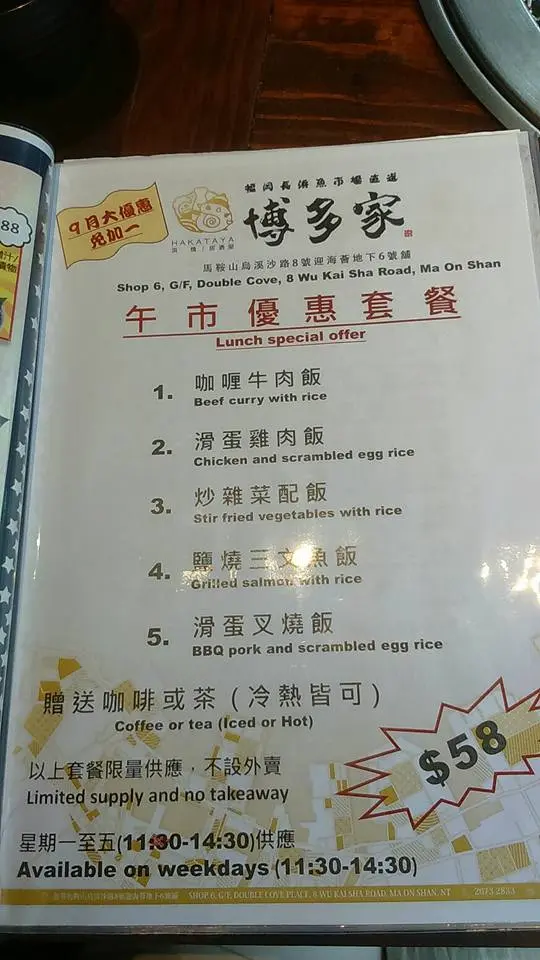 88
9月大優惠
免加一
HAKATAYA
福岡長浜魚市場直送
博多家
馬鞍山烏溪沙路8號迎海薈地下6號舖
Shop 6, G/F, Double Cove, 8 Wu Kai Sha Road, Ma On Shan
午市優惠套餐
Lunch special offer
1. 咖喱牛肉飯
Beef curry with rice
2. 滑蛋雞肉飯
Chicken and scrambled egg rice
3. 炒雜菜配飯
Stir fried vegetables with rice
4. 鹽燒三文魚飯
Grilled salmon with rice
5. 滑蛋叉燒飯
BBQ pork and scrambled egg rice
贈送咖啡或茶 (冷熱皆可)
Coffee or tea (Iced or Hot)
$58
以上套餐限量供應，不設外賣
Limited supply and no takeaway
星期一至五(11:30-14:30)供應
Available on weekdays (11:30-14:30)
SHOP 6, G/F, DOUBLE COVE PLACE, 8 WU KAI SHA ROAD, MA ON SHAN, NT 2673 2833